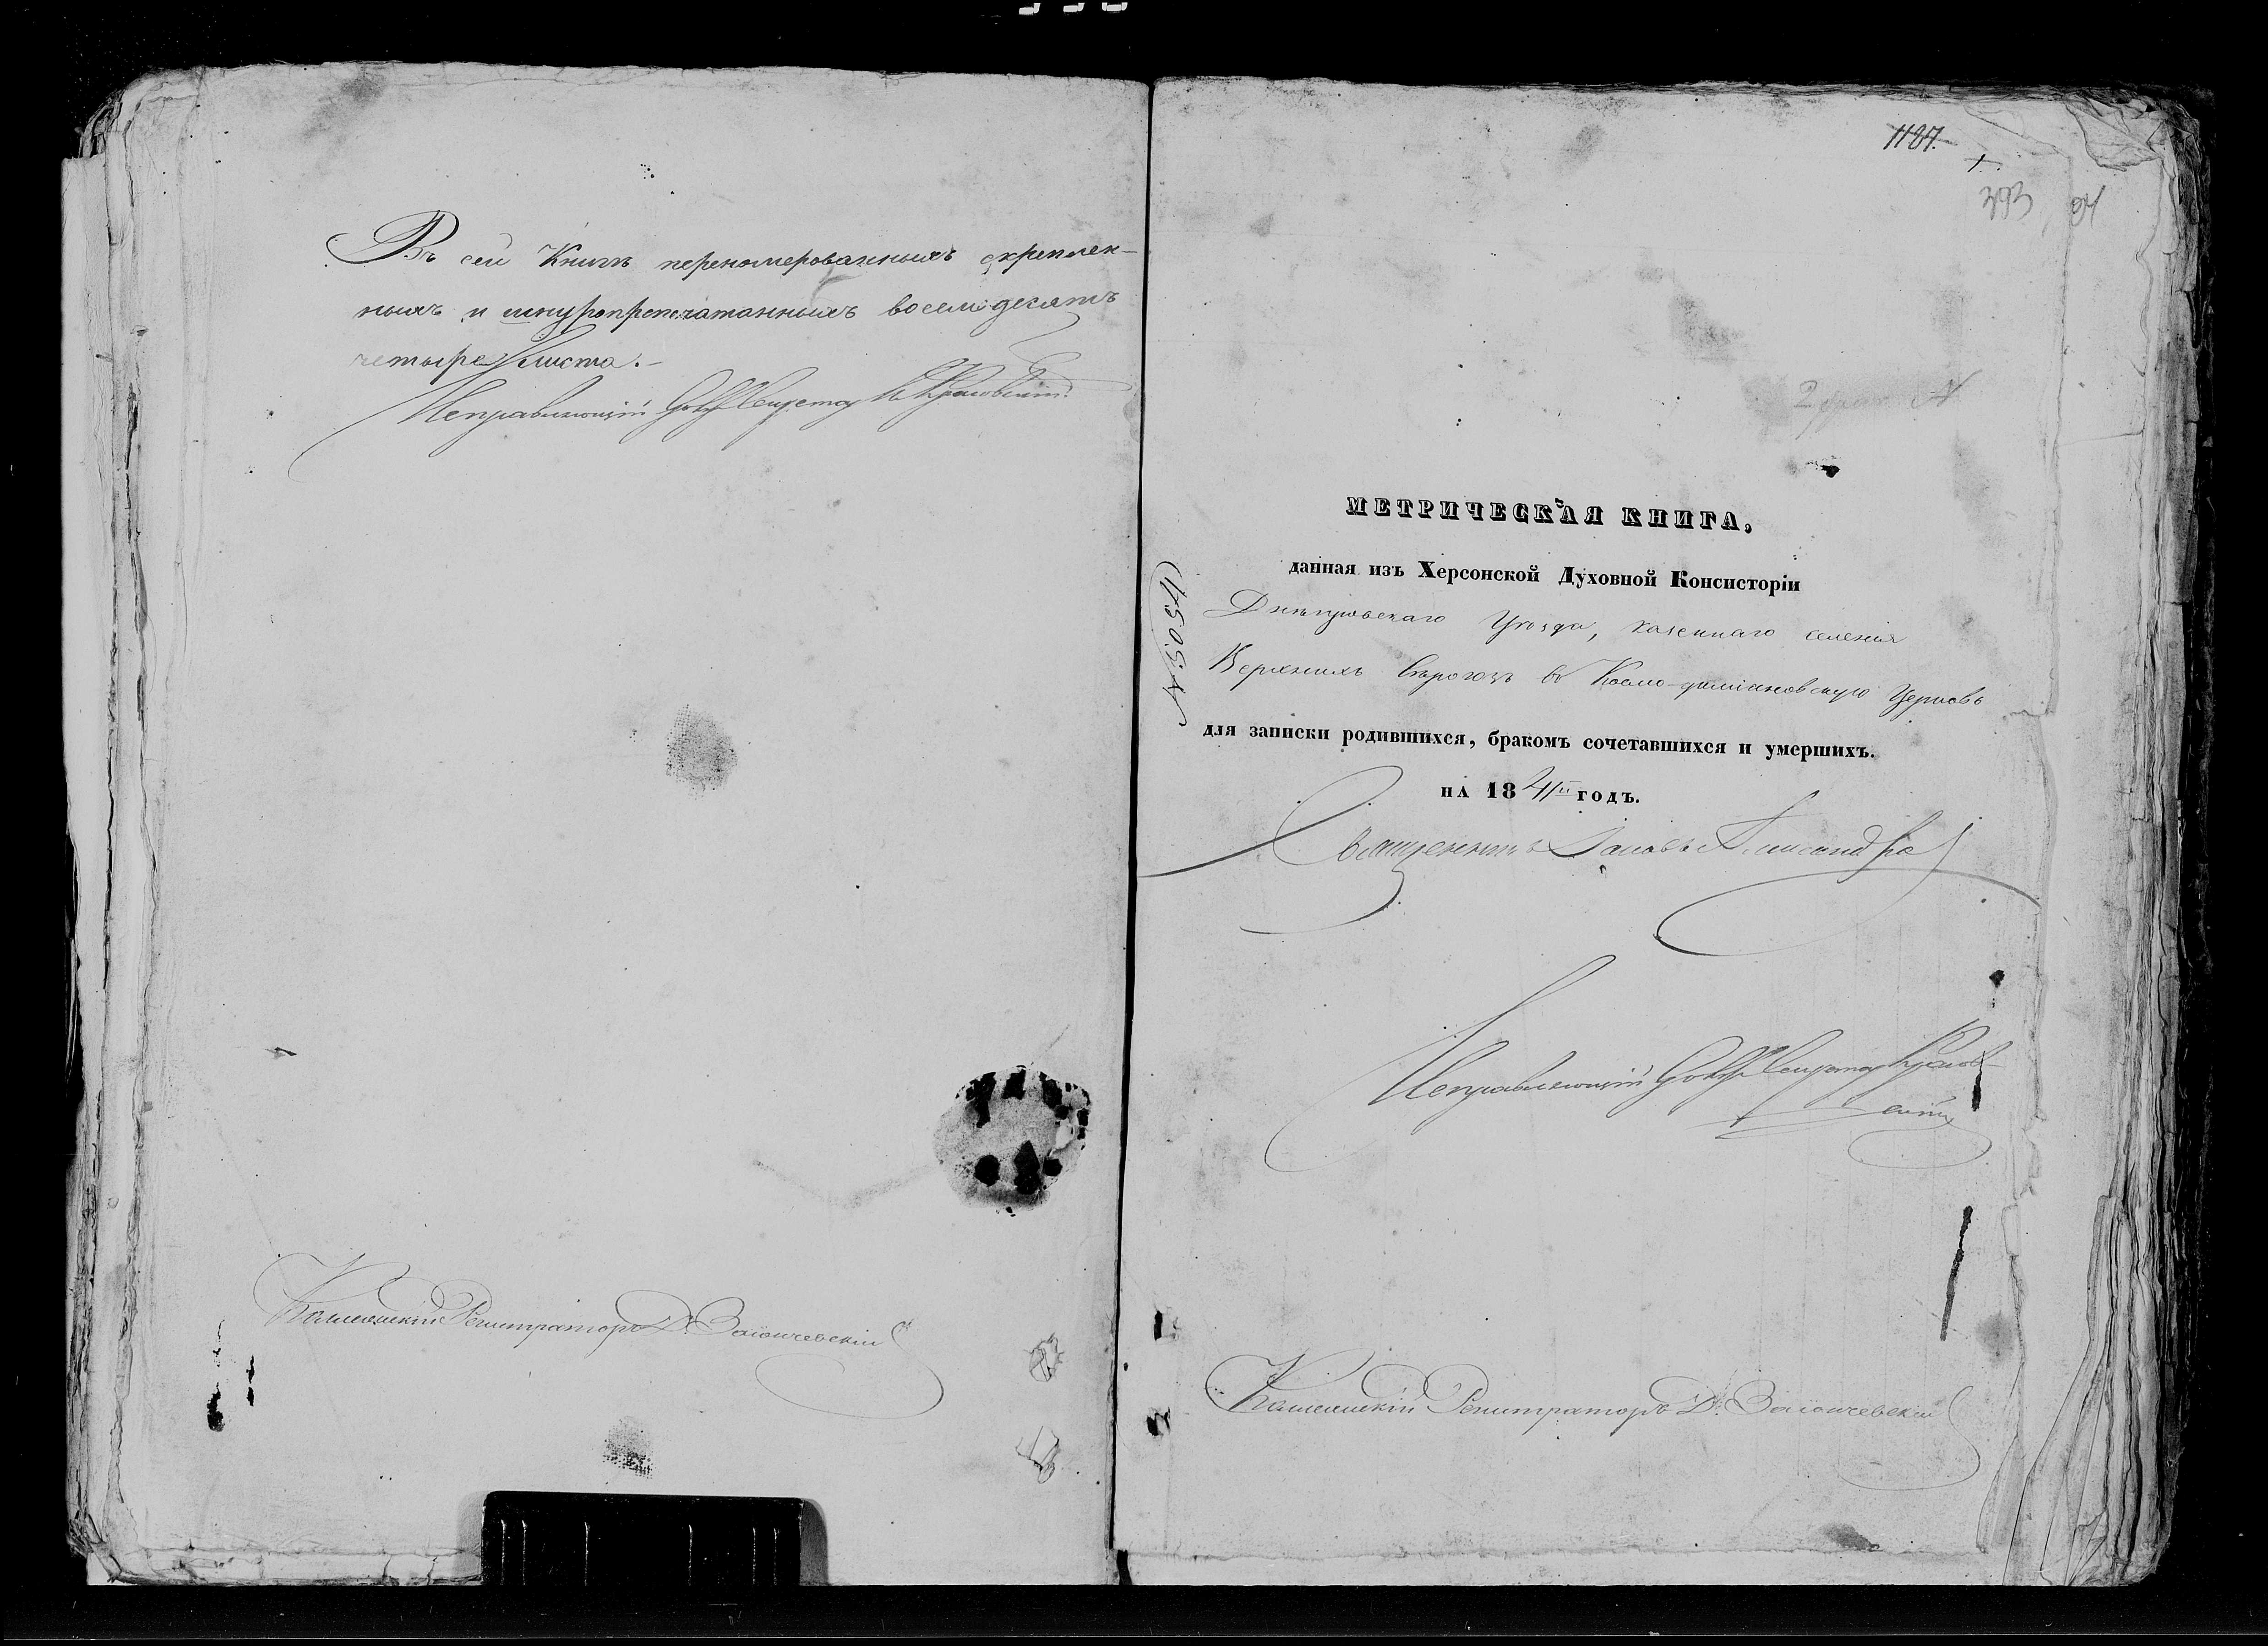 Въ сей Книгѣ переномерованныхъ скреплен-
ныхъ и шнуропрепечатанныхъ восемьдесятъ
четыре листа.-
Исправляющій
Коллежскій Регистраторъ Д. Заіончевскій
1187.
393
МЕТРИЧЕСКАЯ КНИГА,
данная изъ Херсонской Духовной Консисторіи
Днѣпровскаго Уѣзда, казеннаго селенія
Верхнихъ Сѣрогозъ въ Космо-даміановскую Церковь
для записки родившихся, бракомъ сочетавшихся и умершихъ.
НА 1841й ГОДЪ.
Священникъ
Исправляющій
Коллежскій Регистраторъ Д. Заіончевскій